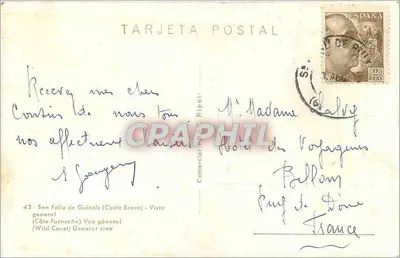 TARJETA POSTAL
ESPAÑA
Recevez mes chers
Cousins de nous tous
nos affectueux
CPARAMA
CPAPHIL
Mr Madame
Hôtel des Voyageurs
Billom
Puy de Dôme
France
Comercial Ripoll
43 - San Feliu de Guixols (Costa Brava) - Vista
general
(Côte Farouche) Vue général
(Wild Coast) General view